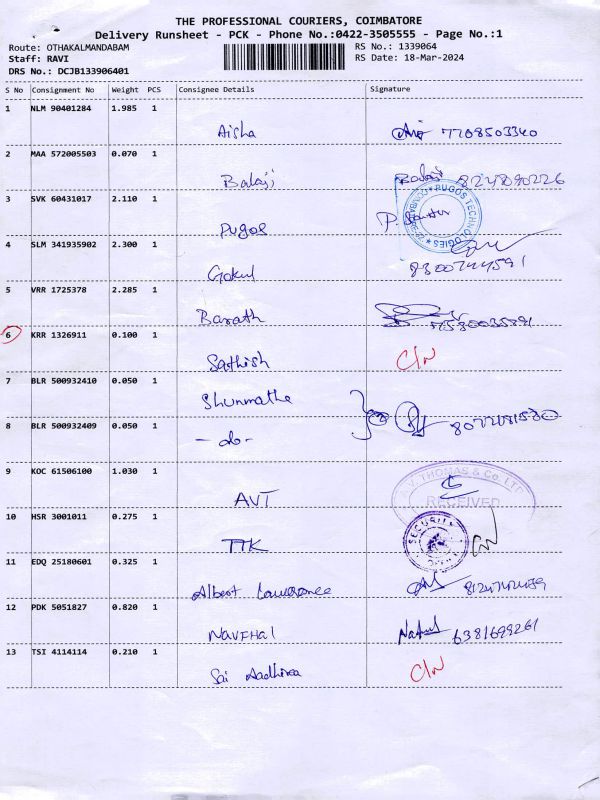 THE PROFESSIONAL COURIERS, COIMBATORE
Delivery Runsheet - PCK - Phone No.:0422-3505555 - Page No.:1
Route: OTHAKALMANDABAM
RS No.: 1339064
Staff: RAVI
RS Date: 18-Mar-2024
DRS No.: DCJB133906401
S No Consignment No Weight PCS Consignee Details Signature
1 NLM 90401284 1.985 1
Aisha 7708503340
2 MAA 572005503 0.070 1
Balaji Balaji 8248090226
3 SVK 60431017 2.110 1
Pugos
PUGOS TECHNOLOGIES
4 SLM 341935902 2.300 1
Gokul 8300744591
5 VRR 1725378 2.285 1
Barath
6 KRR 1326911 0.100 1
Sathish C/N
7 BLR 500932410 0.050 1
Shunmatha
8 BLR 500932409 0.050 1
- do -
9 KOC 61506100 1.030 1
AVT
A.V. THOMAS & Co. LTD
RECEIVED
10 HSR 3001011 0.275 1
TTK
SECURITY
11 EDQ 25180601 0.325 1
Albert Lawrance
12 PDK 5051827 0.820 1
Navfhal 6381699261
13 TSI 4114114 0.210 1
Sai Aadhira C/N